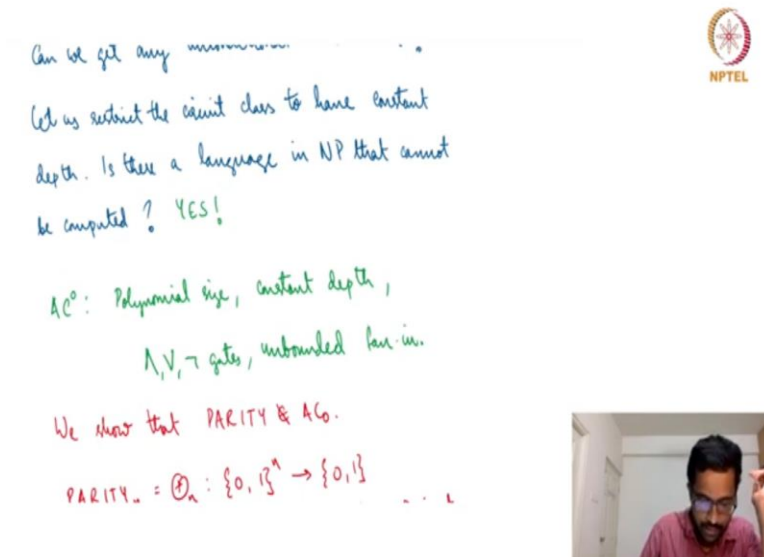 Can we get any
NPTEL
Let us restrict the circuit class to have constant
depth. Is there a language in NP that cannot
be computed? YES!
AC⁰: Polynomial size, constant depth,
∧, ∨, ¬ gates, unbounded fan-in.
We show that PARITY ∉ AC₀.
PARITYₙ = ⊕ₙ : {0, 1}ⁿ → {0, 1}